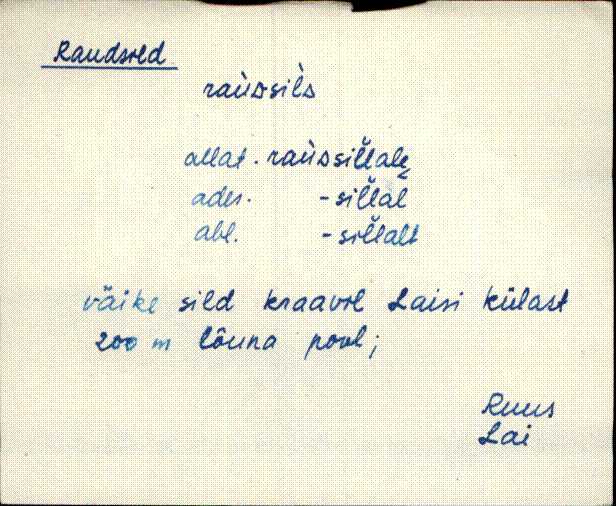 Raudsild
raùᴅsìlᴅ
allat. raùᴅsil̆lalȩ
ades. -sil̆lal
abl. -sil̆lalt
väike sild kraavil Laisi külast
200 m lõuna pool;
Ruus
Lai